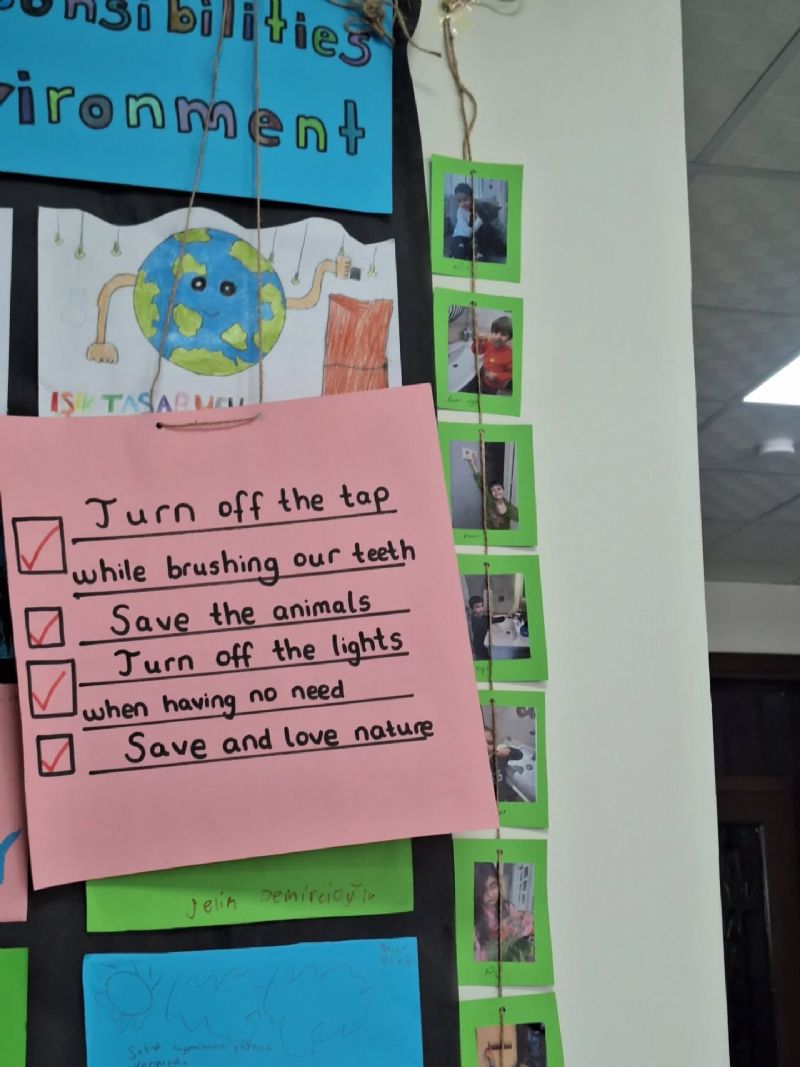 onsibilities
vironment
IŞIK TASARRUFU
Turn off the tap
while brushing our teeth
Save the animals
Turn off the lights
when having no need
Save and love nature
Jelin